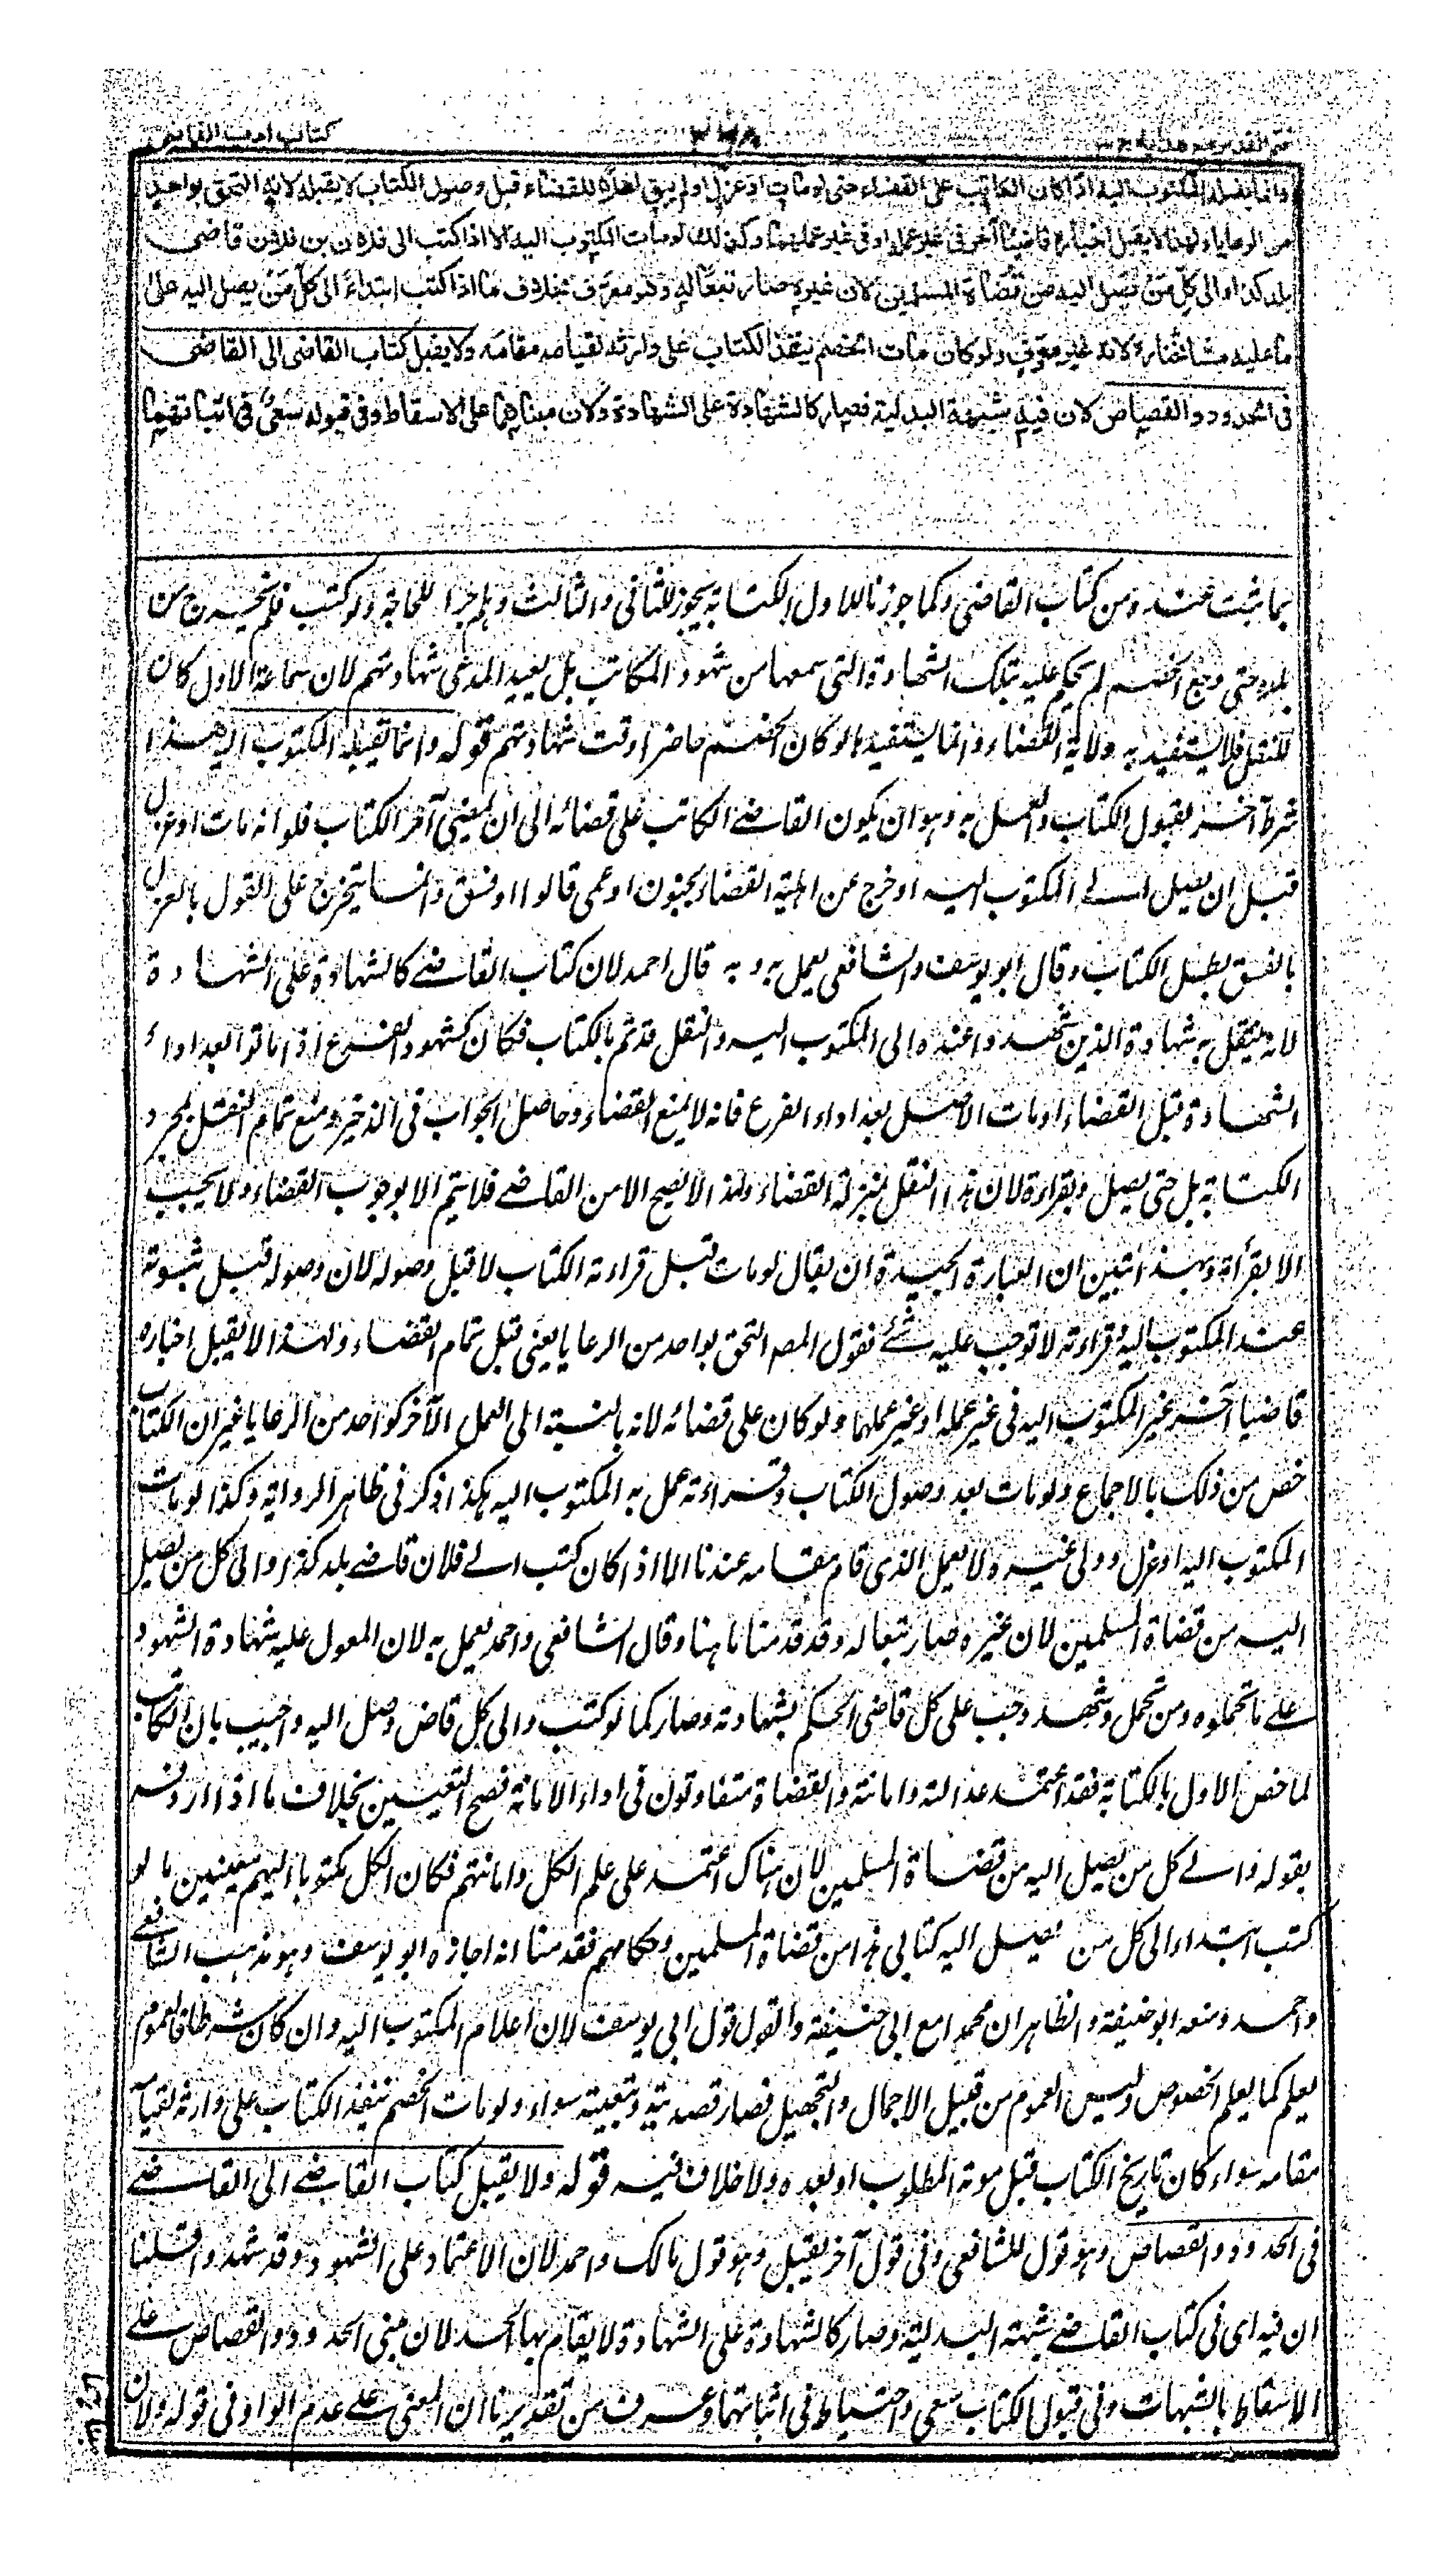 كتاب ادب القاضي
وانما يقبله المكتوب اليه اذا كان الكاتب على القضاء حتى لو مات او عزل او لم يبق اهلا للقضاء قبل وصول الكتاب لا يقبله لانه التحق بواحد
من الرعايا ولهذا لا يقبل اخباره قاضيا آخر فى غير عمله او فى غير عملهما وكذلك لو مات المكتوب اليه الا اذا كتب الى فلان بن فلان قاضى
بلد كذا والى كل من يصل اليه من قضاة المسلمين لان غيره صار تبعا له وهو معرف بخلاف ما اذا كتب ابتداء الى كل من يصل اليه على
ما عليه مشائخنا لانه غير معرف ولو كان مات الخصم ينفذ الكتاب على وارثه لقيامه مقامه ولا يقبل كتاب القاضى الى القاضى
فى الحدود والقصاص لان فيه شبهة البدلية فصار كالشهادة على الشهادة ولان مبناهما على الاسقاط وفى قبوله سعى فى اثباتهما
بما ثبت عنده من كتاب القاضى وكما جوزنا للاول الكتابة يجوز للثانى والثالث وهلم جرا للحاجة ولو كتب فلم يخرج من
بلده حتى رجع الخصم لم يحكم عليه بتلك الشهادة التى سمعها من شهود المكاتب بل يعيد المدعى شهادتهم لان سماعه الاول كان
للنقل فلا يستفيد به ولاية القضاء وانما يستفيدها لو كان الخصم حاضرا وقت شهادتهم قوله وانما يقبله المكتوب اليه هذا
شرط آخر لقبول الكتاب والعمل به وهو ان يكون القاضے الكاتب على قضائه الى ان آخر الكتاب فلو انه مات او عزل
قبل ان يصل الے المكتوب اليه او خرج عن اهلية القضاء بجنون او عمى قالوا او فسق وانما يتخرج على القول بالعزل
بالفسق بطل الكتاب وقال ابو يوسف والشافعى يعمل به وبه قال احمد لان كتاب القاضے كالشهادة على الشهادة
لانه ينقل به شهادة الذين شهدوا عنده الى المكتوب اليه والنقل قد تم بالكتاب فكان كشهود الفرع اذا ماتوا بعد اداء
الشهادة قبل القضاء او مات الاصل بعد اداء الفرع فانه لا يمنع القضاء وحاصل الجواب فى الذخيرة منع تمام النقل بمجرد
الكتابة بل حتى يصل ويقرأه لان هذا النقل بمنزلة القضاء ولهذا لا يصح الا من القاضے فلا يتم الا بوجوب القضاء ولا يجب
الا بقرأته وبهذا تبين ان العبارة الجيدة ان يقال لو مات قبل قراءته الكتاب لا قبل وصوله لان وصوله قبل ثبوته
عند المكتوب اليه وقراءته لا توجب عليه شئے فقول المصہ التحق بواحد من الرعايا يعنى قبل تمام القضاء ولهذا لا يقبل اخباره
قاضيا آخر غير المكتوب اليه فى غير عمله او غير عملهما ولو كان على قضائه لانه بالنسبة الى العمل الآخر كواحد من الرعايا غير ان الكتاب
خص من ذلك بالاجماع ولو مات بعد وصول الكتاب وقراءته عمل به المكتوب اليه هكذا ذكر فى ظاهر الرواية وكذا لو مات
المكتوب اليه او عزل وولى غيره لا يعمل الذى قام مقامه عندنا الا اذا كان كتب الے فلان قاضے بلد كذا والى كل من يصل
اليه من قضاة المسلمين لان غيره صار تبعا له وقد قدمنا ما هنا وقال الشافعى واحمد يعمل به لان المعول عليه شهادة الشهود
علے ما تحملوه ومن تحمل وشهد وجب على كل قاضى الحكم بشهادته وصار كما لو كتب والى كل قاض وصل اليه واجيب بان الكاتب
لما خص الاول بالكتابة فقد اعتمد عدالته وامانته والقضاة متفاوتون فى اداء الامانة فصح التعيين بخلاف ما اذا اردفه
بقوله والے كل من يصل اليه من قضاة المسلمين لان هناك اعتمد على علم الكل وامانتهم فكان الكل مكتوبا اليهم معينين ما لو
كتب ابتداء الى كل من يصل اليه كتابى هذا من قضاة المسلمين وحكامهم فقد منا انه اجازه ابو يوسف وهو مذهب الشافعے
واحمد ومنعه ابو حنيفة والظاهر ان محمدا مع ابى حنيفة والقول قول ابى يوسف لان اعلام المكتوب اليه وان كان شرطا فالعموم
يعلم كما يعلم الخصوص وليس العموم من قبيل الاجمال والتجهيل فصار قصديته وتبعيته سواء ولو مات الخصم ينفذ الكتاب على وارثه لقيامه
مقامه سواء كان تاريخ الكتاب قبل موت المطلوب او بعده ولا خلاف فيه قوله ولا يقبل كتاب القاضے الى القاضے
فى الحدود والقصاص وهو قول للشافعى وفى قول آخر يقبل وهو قول مالك واحمد لان الاعتماد على الشهود وقد شهدوا قلنا
ان فيه اى فى كتاب القاضے شبهة البدلية وصار كالشهادة على الشهادة لا يقام بها الحد لان مبنى الحدود والقصاص علے
الاسقاط بالشبهات وفى قبول الكتاب سعى واحتياط فى اثباتهما وعرف من تقديرنا ان المعنى علے عدم الواو فى قوله ولان